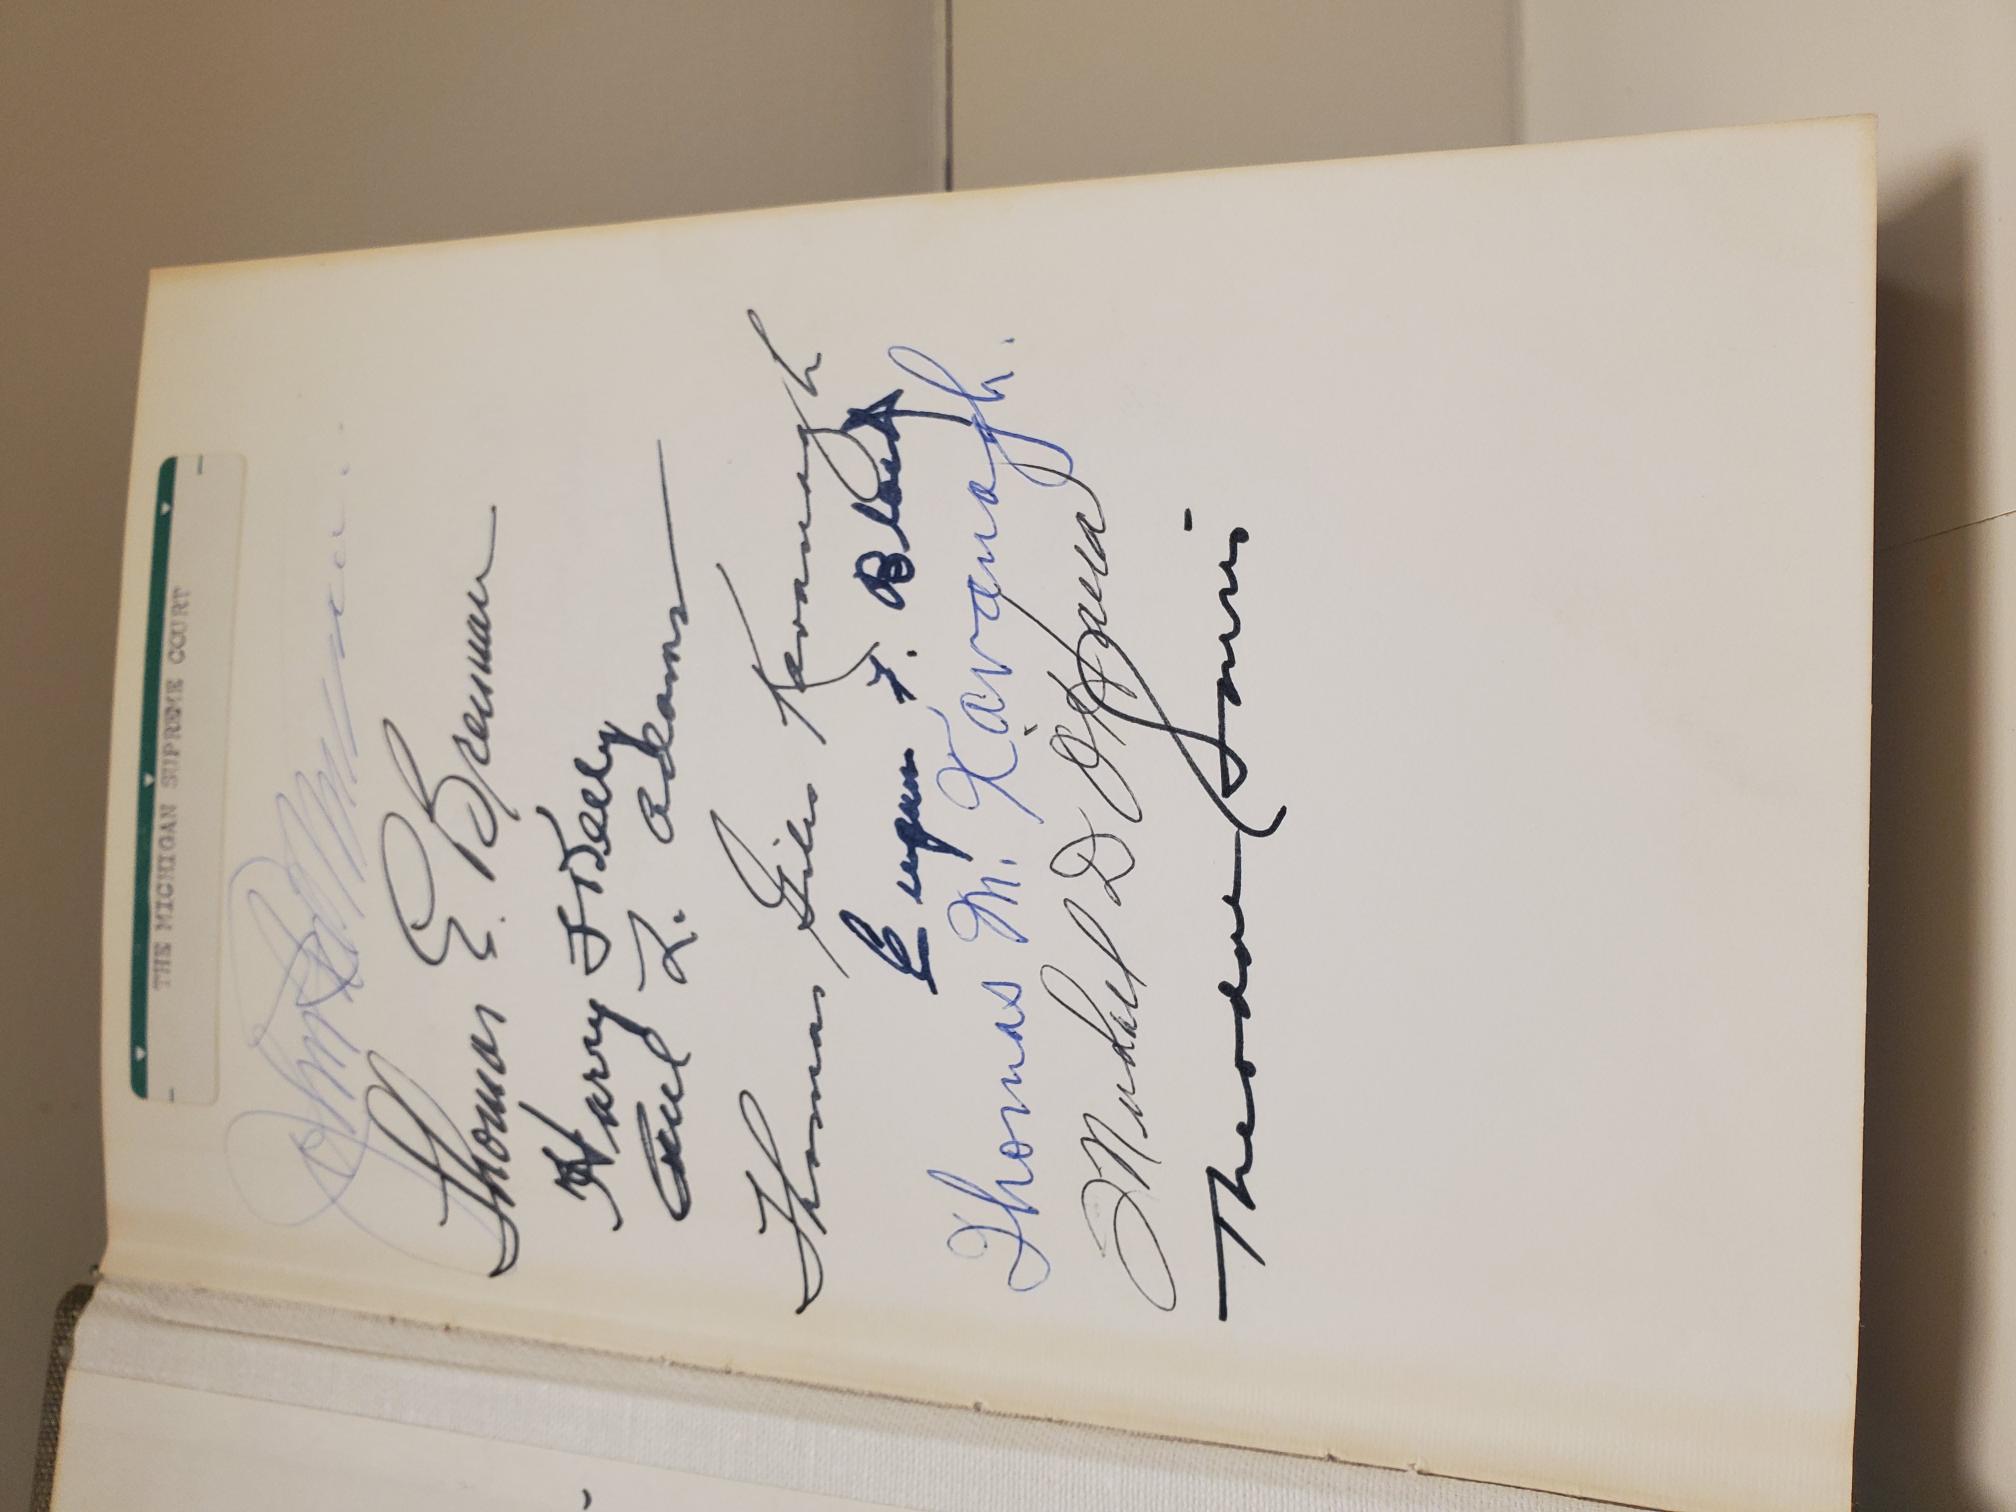 THE MICHIGAN SUPREME COURT
John
Thomas E. Brennan
Harry F Kelly
Paul L. Adams
Thomas Giles Kavanagh
Eugene F. Black
Thomas M. Kavanagh.
Michael D O'Hara
Theodore Souris